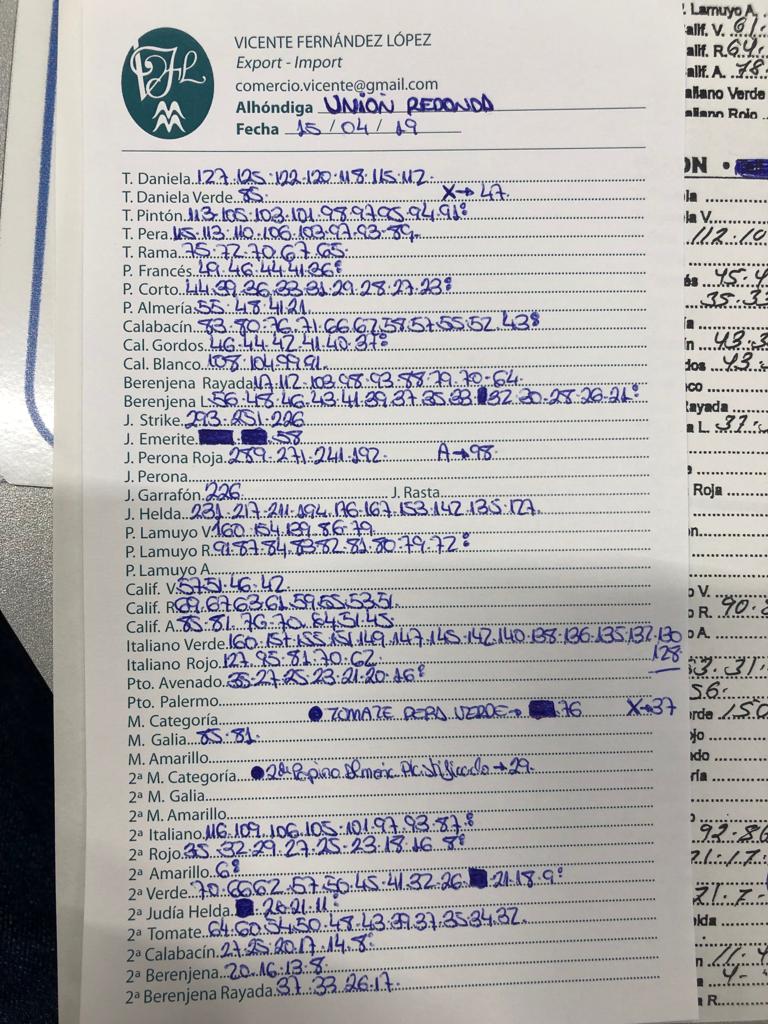 VICENTE FERNÁNDEZ LÓPEZ
Export - Import
comercio.vicente@gmail.com
Alhóndiga UNION REDONDA
Fecha 15 / 04 / 19
T. Daniela 127.125.122.120.118.115.112.
T. Daniela Verde 85. X→47.
T. Pintón 113.105.103.101.98.97.95.94.91.
T. Pera 115.113.110.106.103.97.93.89.
T. Rama 75.72.70.67.65.
P. Francés 49.46.44.41.36.
P. Corto 44.39.36.33.31.29.28.27.23.
P. Almería 55.48.41.21.
Calabacín 83.80.76.71.66.62.58.57.55.52.43.
Cal. Gordos 46.44.42.41.40.37.
Cal. Blanco 108.104.99.91.
Berenjena Rayada 117.112.103.98.93.88.79.70.64.
Berenjena L. 56.48.46.43.41.39.37.35.33.32.30.28.26.21.
J. Strike 293.251.226
J. Emerite 58
J. Perona Roja 289.271.241.192. A→98.
J. Perona
J. Garrafón 226 J. Rasta
J. Helda 231.217.211.194.176.167.153.142.135.127.
P. Lamuyo V. 160.154.139.86.79.
P. Lamuyo R. 91.87.84.83.82.81.80.79.72.
P. Lamuyo A.
Calif. V. 57.51.46.42
Calif. R. 69.67.63.61.59.55.53.51.
Calif. A. 85.81.76.70.64.51.45.
Italiano Verde 160.157.155.151.149.147.145.142.140.138.136.135.132.130
128
Italiano Rojo 127.95.81.70.62.
Pto. Avenado 35.27.25.23.21.20.16.
Pto. Palermo
M. Categoría TOMATE PERA VERDE→ 76 X→37
M. Galia 85.81.
M. Amarillo
2ª M. Categoría 2ª Pepino Almería Plastificado→29.
2ª M. Galia
2ª M. Amarillo
2ª Italiano 116.109.106.105.101.97.93.87.
2ª Rojo 35.32.29.27.25.23.18.16.8.
2ª Amarillo 6.
2ª Verde 70.66.62.57.50.45.41.32.26.21.18.9.
2ª Judía Helda 26.21.11.
2ª Tomate 64.60.54.50.48.43.39.37.35.34.32.
2ª Calabacín 27.25.20.17.14.8.
2ª Berenjena 20.16.13.8.
2ª Berenjena Rayada 37.33.26.17.